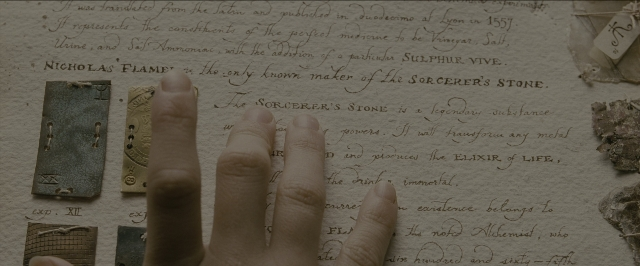 It was translated from the Latin and published in duodecimo at Lyon in 1557.
It represents the constituents of the perfect medicine to be Vinegar, Salt,
Urine, and Salt Ammoniac with the addition of a particular SULPHUR VIVE.
NICHOLAS FLAMEL is the only known maker of the SORCERER'S STONE.
The SORCERER'S STONE is a legendary substance
powers. It will transform any metal
and produces the ELIXIR of LIFE,
the drink immortal.
existence belongs to
the noted Alchemist, who
hundred and sixty-fifth
exp. XII